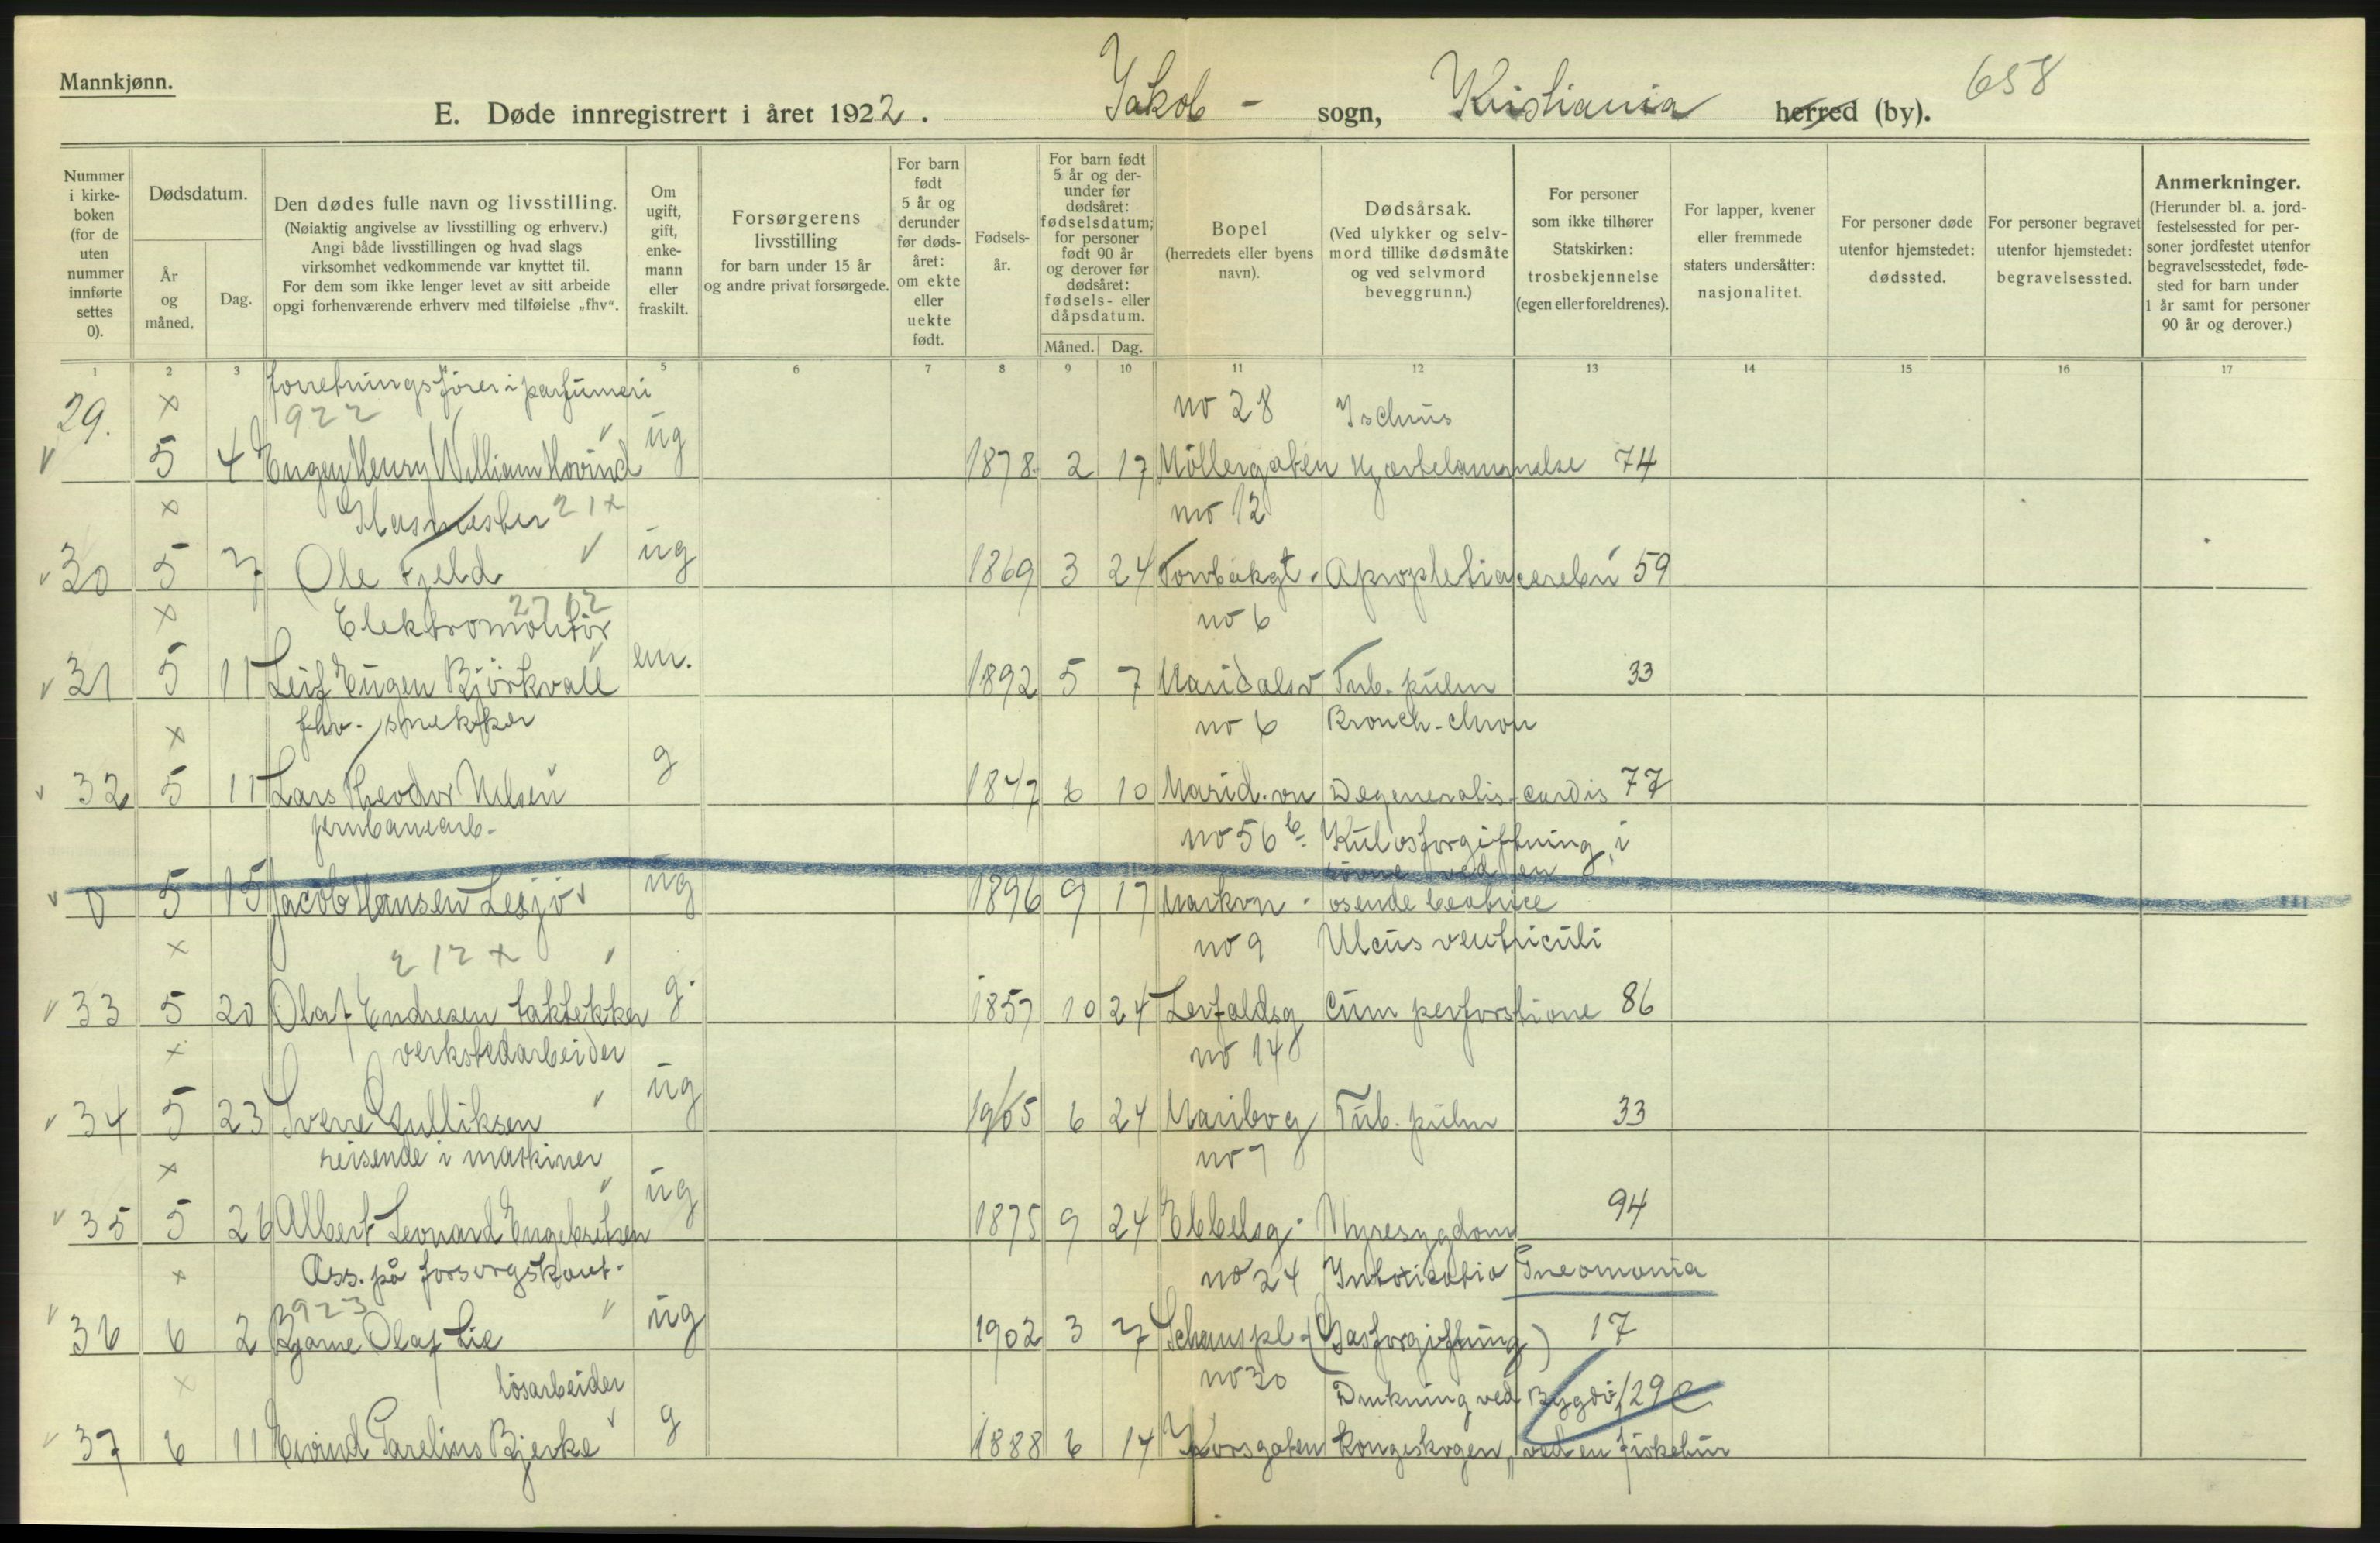 Mannkjønn.
658
E. Døde innregistrert i året 1922. Jakob - sogn, Kristiania herred (by).
Nummer i kirke-boken (for de uten nummer innførte settes 0).
Dødsdatum.
År og måned.
Dag.
Den dødes fulle navn og livsstilling.
(Nøiaktig angivelse av livsstilling og erhverv.)
Angi både livsstillingen og hvad slags
virksomhet vedkommende var knyttet til.
For dem som ikke lenger levet av sitt arbeide
opgi forhenværende erhverv med tilføielse „fhv“.
Om ugift, gift, enke-mann eller fraskilt.
Forsørgerens livsstilling
for barn under 15 år
og andre privat forsørgede.
For barn født 5 år og derunder før døds-året: om ekte eller uekte født.
Fødsels-år.
For barn født 5 år og der-under før dødsåret: fødselsdatum; for personer født 90 år og derover før dødsåret: fødsels- eller dåpsdatum.
Måned. Dag.
Bopel
(herredets eller byens navn).
Dødsårsak.
(Ved ulykker og selv-mord tillike dødsmåte og ved selvmord beveggrunn.)
For personer som ikke tilhører Statskirken: trosbekjennelse (egen eller foreldrenes).
For lapper, kvener eller fremmede staters undersåtter: nasjonalitet.
For personer døde utenfor hjemstedet: dødssted.
For personer begravet utenfor hjemstedet: begravelsessted.
Anmerkninger.
(Herunder bl. a. jord-festelsessted for per-soner jordfestet utenfor begravelsesstedet, føde-sted for barn under 1 år samt for personer 90 år og derover.)
1 2 3 5 6 7 8 9 10 11 12 13 14 15 16 17
forretningsfører i parfumeri
29. x 922 no 28 Ischius
5 4 Eugen Henry William Hovind ug 1878 2 17 Möllergaten Hjertelammelse 74
x Glasmester 21x no 12
30 5 7 Ole Fjeld ug 1869 3 24 Torvbakgt. Apoplehia cerebri 59
x 2712 Elektromontör no 6
31 5 11 Leif Eugen Björkvall em. 1892 5 7 Maridalsv Tub. pulm 33
x fhv. snekker no 6 Bronch. chron
32 5 11 Lars Theodor Nilsen g 1847 8 10 Marid.vn Degeneratis cardis 77
jernbanearb. no 56 b. Kulosforgiftning i
søvne ved en
0 5 15 Jacob Hansen Lesjö ug 1896 9 17 Markvn. osende beatrice
x 212 x no 9 Ulcus ventriculi
33 5 20 Olaf Endresen taktekker g. 1857 10 24 Lerfaldsg cum perforatione 86
x verkstedarbeider no 14
34 5 23 Sverre Gulliksen ug 1905 6 24 Maribog Tub. pulm 33
x reisende i maskiner no 7
35 5 26 Albert Leonard Engebretsen ug 1875 9 24 Ebbelsg. Nyresygdom 94
x Ass. på forsorgskont. no 24 Intoxicatio Pneomonia
36 6 2 923 Bjarne Olaf Lie ug 1902 3 27 Schouspl. (Gasforgiftning) 17
x løsarbeider no 30 Drukning ved Bygdö/29 e
37 6 11 Eivind Parelius Bjerke g 1888 6 14 Korsgaten Kongeskogen, ved en fiskebur